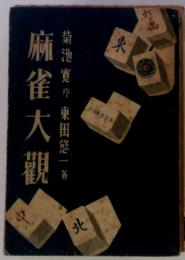 菊池寛序 東田慾一著
麻雀大觀
六萬
東
中
北